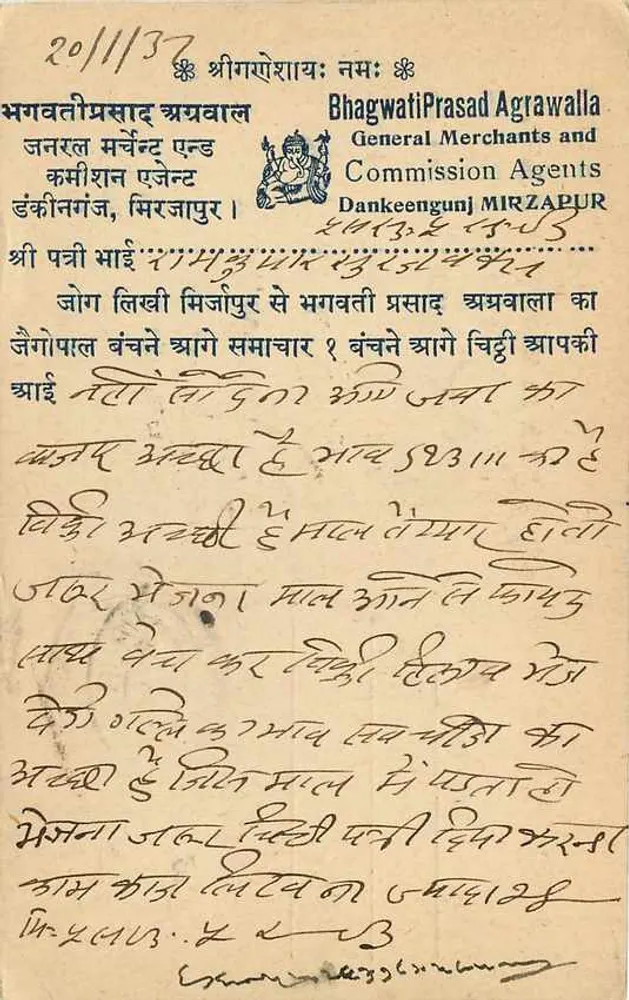 20/1/37
श्रीगणेशायः नमः
भगवतीप्रसाद अग्रवाल
जनरल मर्चेन्ट एन्ड
कमीशन एजेन्ट
डंकीनगंज, मिरजापुर।
BhagwatiPrasad Agrawalla
General Merchants and
Commission Agents
Dankeengunj MIRZAPUR
श्री पत्री भाई रामकुमार
जोग लिखी मिर्जापुर से भगवती प्रसाद अग्रवाला का
जैगोपाल बंचने आगे समाचार १ बंचने आगे चिठ्ठी आपकी
आई नहीं सो देना और जवा का
बाजार अच्छा है भाव का है
बिक्री अच्छी है माल तैयार हो तो
जरूर भेजना माल आने से
साथ बेच कर बिक्री हिसाब भेज
देंगे गल्ले का भाव सब चीज का
अच्छा है जिस माल में पड़ता हो
भेजना जरूर चिठ्ठी पत्री दिया करना
काम काज लिखना ज्यादा